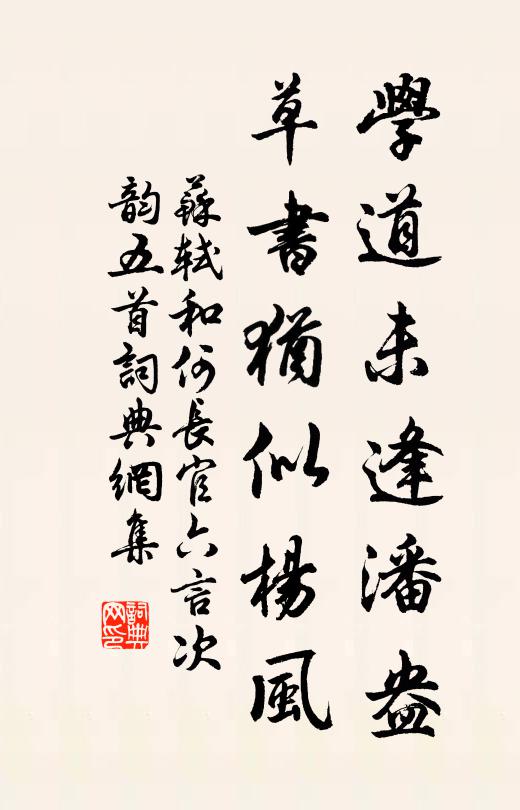 學道未逢潘盎
草書猶似楊風
蘇軾和何長官六言次
韵五首詞典網集
詞典
网印